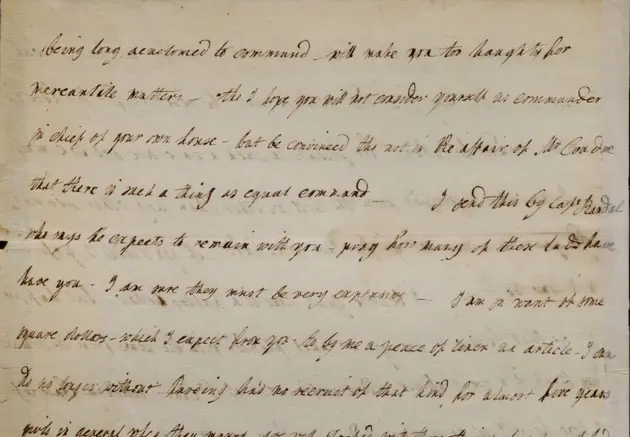 being long acustomed to command – will make you too haughty for
mercantile matters – tho I hope you will not consider yourself as commander
in cheif of your own house – but be convinced tho not in the affair of Mr Coudre
that there is such a thing as equal command – I send this by Capt Randal
who says he expects to remain with you – pray how many of these lads have
have you – I am sure they must be very expensive – I am in want of some
square dollars – which I expect from you to by me a peace of linen an article I can
do no longer without haveing had no recruit of that kind for almost five years
girls in general when they marry are well stocked with those